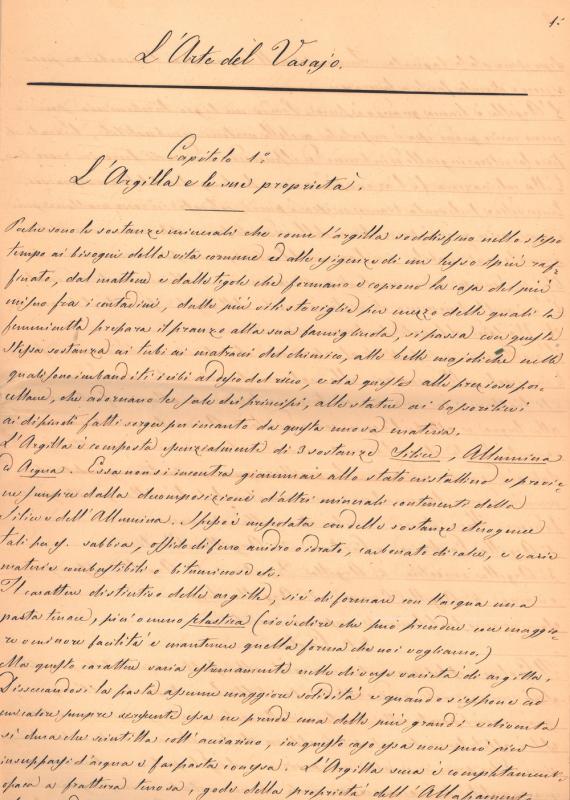 1.
L'Arte del Vasajo.
Capitolo 1.o
L'Argilla e le sue proprietà.
Poche sono le sostanze minerali che come l'argilla soddisfino nello stesso
tempo ai bisogni della vita comune ed alle esigenze di un lusso il più raf-
finato, dal mattone e dalle tegole che formano e coprono la casa del più
misero fra i contadini, dalle più vili stoviglie per mezzo delle quali la
femminetta prepara il pranzo alla sua famigliuola, si passa con questa
stessa sostanza ai tubi ai matracci del chimico, alle belle majoliche nelle
quali sono imbanditi i cibi al desco del ricco, e da queste alle preziose por-
cellane, che adornano le sale dei principi, alle statue ai bassorilievi
ai dipinti fatti sorger per incanto da questa nuova materia.
L'Argilla è composta essenzialmente di 3 sostanze Silice, Allumina
ed Acqua. Essa non si incontra giammai allo stato cristallino e provie-
ne sempre dalla decomposizione d'altri minerali contenenti della
Silice e dell'Allumina. Spesso è impastata con delle sostanze eterogenee
tali per es. sabbia, ossido di ferro anidro o idrato, carbonato di calce, e varie
materie combustibili o bituminose etc.
Il carattere distintivo delle argille, si è di formare con l'acqua una
pasta tenace, più o meno plastica (cioè a dire che può prendere con maggio-
re o minore facilità e mantenere quella forma che noi vogliamo.)
Ma questo carattere varia estremamente nelle diverse varietà di argilla.
Disseccandosi la pasta assume maggiore solidità e quando si espone ad
un calore sempre crescente essa ne prende una delle più grandi e diventa
sì dura che scintilla coll'acciarino, in questo caso essa non può più
insupparsi d'acqua e far pasta con essa. L'Argilla secca è completament-
opaca a frattura terrosa, gode della proprietà dell'Allappamento